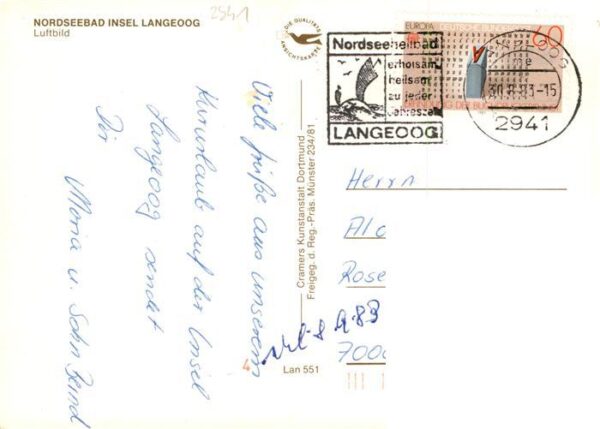 NORDSEEBAD INSEL LANGEOOG
Luftbild
2941
DIE QUALITÄTS
ANSICHTSKARTE
Viele Grüße aus unserem
Kururlaub auf der Insel
Langeoog sendet
Dir
Maria u. Sohn Bernd
Cramers Kunstanstalt Dortmund
Freigeg. d. Reg.-Präs. Münster 234/81
Lan 551
4
Nordseeheilbad
erholsam
heilsam
zu jeder
Jahreszeit
LANGEOOG
EUROPA
60
-15
2941
Herrn
Alo
Rose
8.9.83
7000